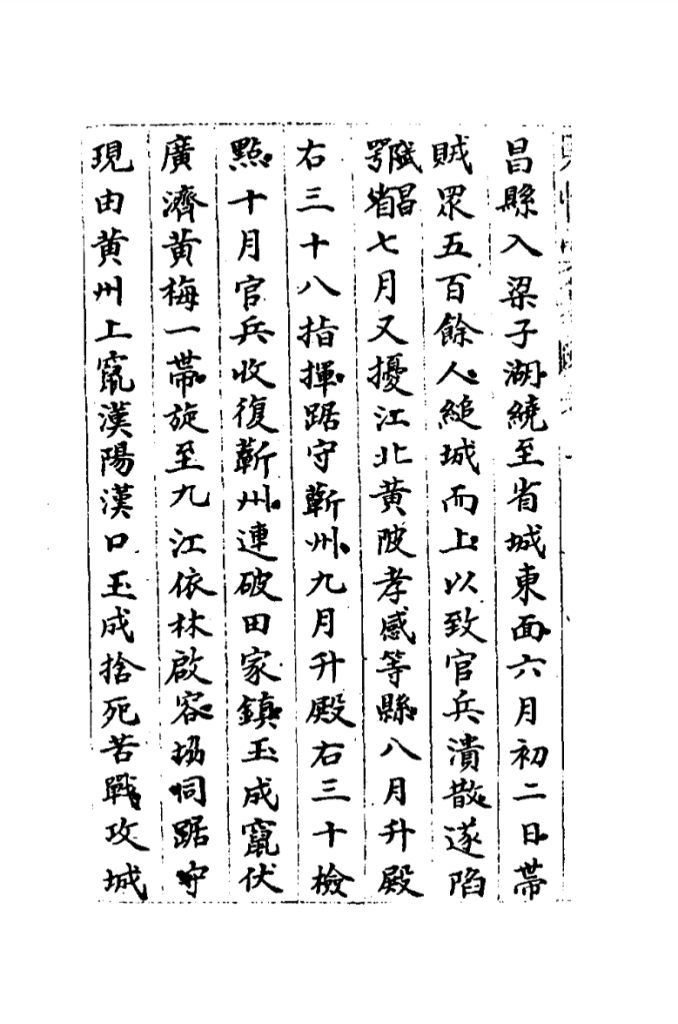 昌縣入梁子湖繞至省城東面六月初二日帶
賊眾五百餘人縋城而上以致官兵潰散遂陷
鄂省武昌七月又擾江北黃陂孝感等縣八月升殿
右三十八指揮踞守蘄州九月升殿右三十檢
點十月官兵收復蘄州連破田家鎮玉成竄伏
廣濟黃梅一帶旋至九江依林啟容協同踞守
現由黃州上竄漢陽漢口玉成捨死苦戰攻城